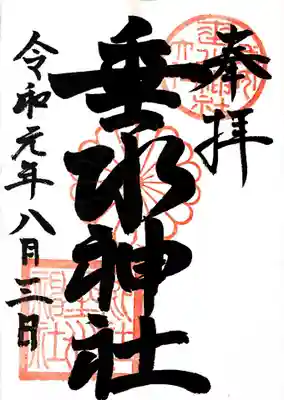 奉拝
垂水神社
令和元年八月三日